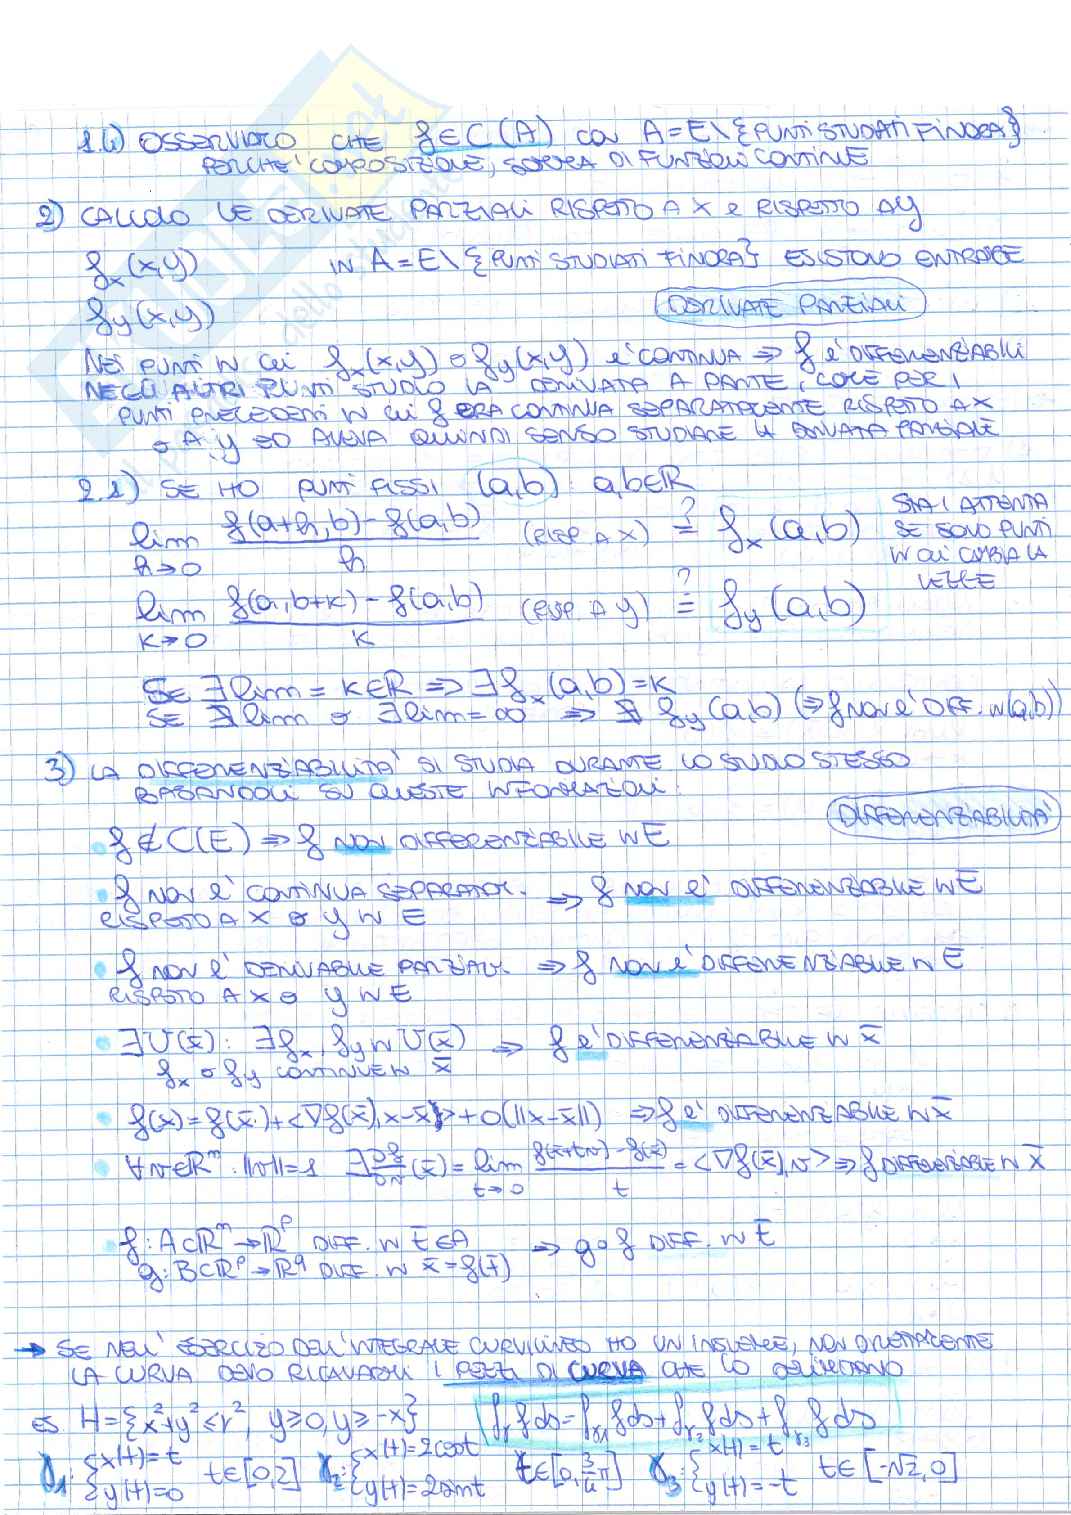 1.4) OSSERVIAMO CHE f∈C(A) CON A=E\{PUNTI STUDIATI FINORA}
PERCHE' COMPOSIZIONE, SOMMA DI FUNZIONI CONTINUE
2) CALCOLO LE DERIVATE PARZIALI RISPETTO A X e RISPETTO A Y
fx(x,y) IN A=E\{PUNTI STUDIATI FINORA} ESISTONO ENTRAMBE
fy(x,y) DERIVATE PARZIALI
NEI PUNTI IN CUI fx(x,y) o fy(x,y) e' CONTINUA ⇒ f e' DIFFERENZIABILE
NEGLI ALTRI PUNTI STUDIO LA DERIVATA A PARTE, COME PER I
PUNTI PRECEDENTI IN CUI f ERA CONTINUA SEPARATAMENTE RISPETTO A X
o A y ED AVEVA QUINDI SENSO STUDIARE LA DERIVATA PARZIALE
2.1) SE HO PUNTI FISSI (a,b) a,b∈R
lim h→0 f(a+h,b)-f(a,b) / h (RISP. A X) =? fx(a,b)
STAI ATTENTA
SE SONO PUNTI
IN CUI CAMBIA LA
LEGGE
lim k→0 f(a,b+k)-f(a,b) / k (RISP. A Y) =? fy(a,b)
SE ∃ lim = k∈R ⇒ ∃ fx(a,b)=k
SE ∄ lim o ∃ lim=∞ ⇒ ∄ fy(a,b) (⇒ f NON e' DIFF. IN (a,b))
3) LA DIFFERENZIABILITA' SI STUDIA DURANTE LO STUDIO STESSO
BASANDOCI SU QUESTE INFORMAZIONI:
DIFFERENZIABILITA'
• f∉C(E) ⇒ f NON DIFFERENZIABILE IN E
• f NON e' CONTINUA SEPARATAM. ⇒ f NON e' DIFFERENZIABILE IN E
RISPETTO A X o y IN E
• f NON e' DERIVABILE PARZIALM. ⇒ f NON e' DIFFERENZIABILE IN E
RISPETTO A X o y IN E
• ∃U(x̄): ∃fx, fy IN U(x̄) ⇒ f e' DIFFERENZIABILE IN x̄
fx o fy CONTINUE IN x̄
• f(x)=f(x̄)+<∇f(x̄),x-x̄>+o(||x-x̄||) ⇒ f e' DIFFERENZIABILE IN x̄
• ∀v∈Rᵐ: ||v||=1 ∃ ∂f/∂v (x̄) = lim t→0 f(x̄+tv)-f(x̄) / t = <∇f(x̄),v> ⇒ f DIFFERENZIABILE IN x̄
• f:A⊂Rᵐ→Rᵖ DIFF. IN t̄∈A ⇒ g∘f DIFF. IN t̄
g:B⊂Rᵖ→R^q DIFF. IN x̄=f(t̄)
→ SE NELL'ESERCIZIO DELL'INTEGRALE CURVILINEO HO UN INSIEME, NON DIRETTAMENTE
LA CURVA DEVO RICAVARMI I PEZZI DI CURVA CHE LO DELIMITANO
ES H={x²+y²≤r², y≥0, y≥-x} ∫γ f ds=∫γ1 f ds+∫γ2 f ds+∫γ3 f ds
γ1:{x(t)=t t∈[0,2] γ2:{x(t)=2cost t∈[0,3/4π] γ3:{x(t)=t t∈[-√2,0]
{y(t)=0 {y(t)=2sint {y(t)=-t